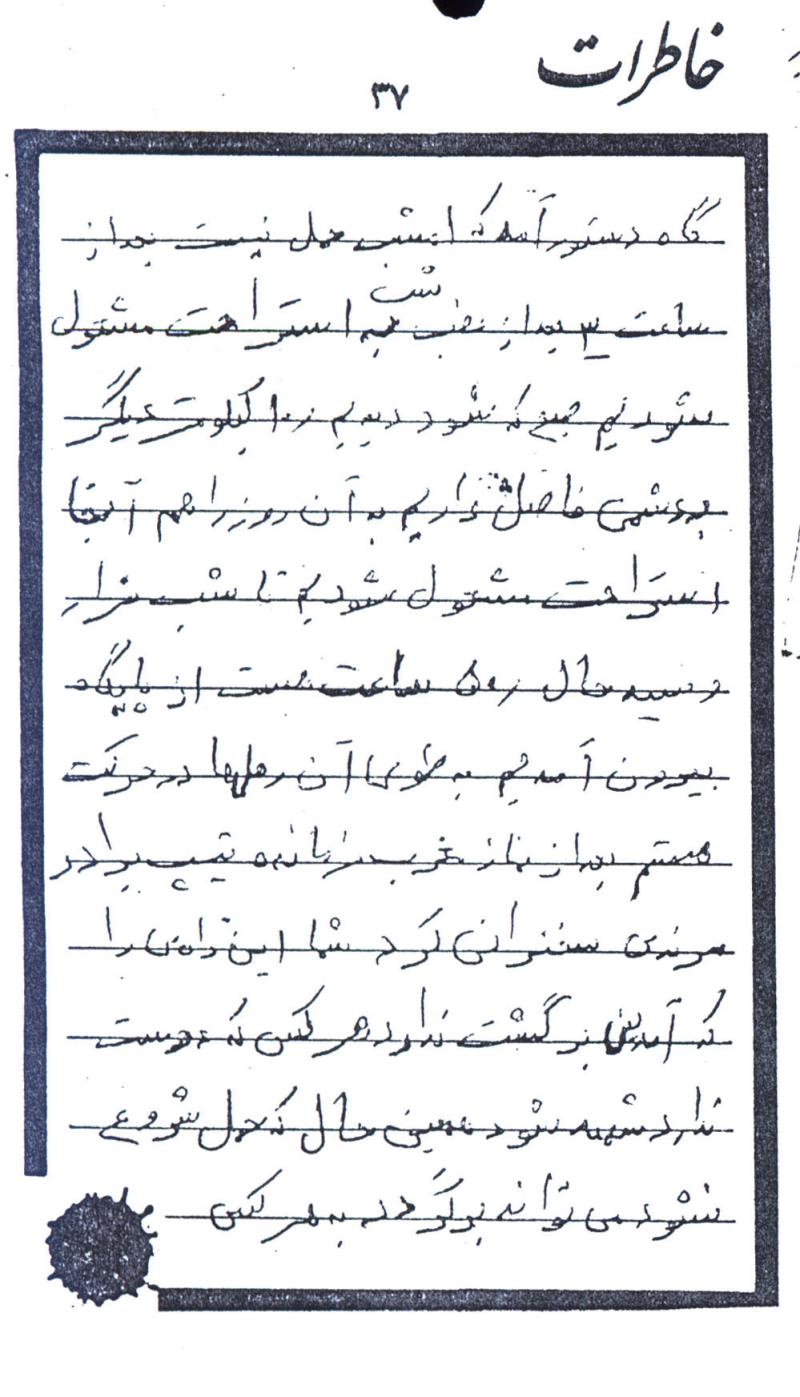 خاطرات
۳۷
گاه دستور آمد که امشب حمل نیست بعد از
شب
ساعت ۳ بعد از نصف به استراحت مشغول
شودیم صبح که شود دیدیم ۱۰ کیلومتر دیگر
بدشمن فاصل داریم به آن روز را هم آنجا
استراحت مشغول شودیم تا شب فرار
رسید حال ساعت هست از پایگاه
بیرون آمدیم به طوی آن رملها در حرکت
هستم بعد از نماز غرب فرمانده تیپ برادر
مرندی سخنرانی کرد شما این راهی را
که آمدین برگشت ندارد هر کس که دوست
ندارد شهید شود همین حال که حمل شروع
نشود می تواند برگردد به هر کس